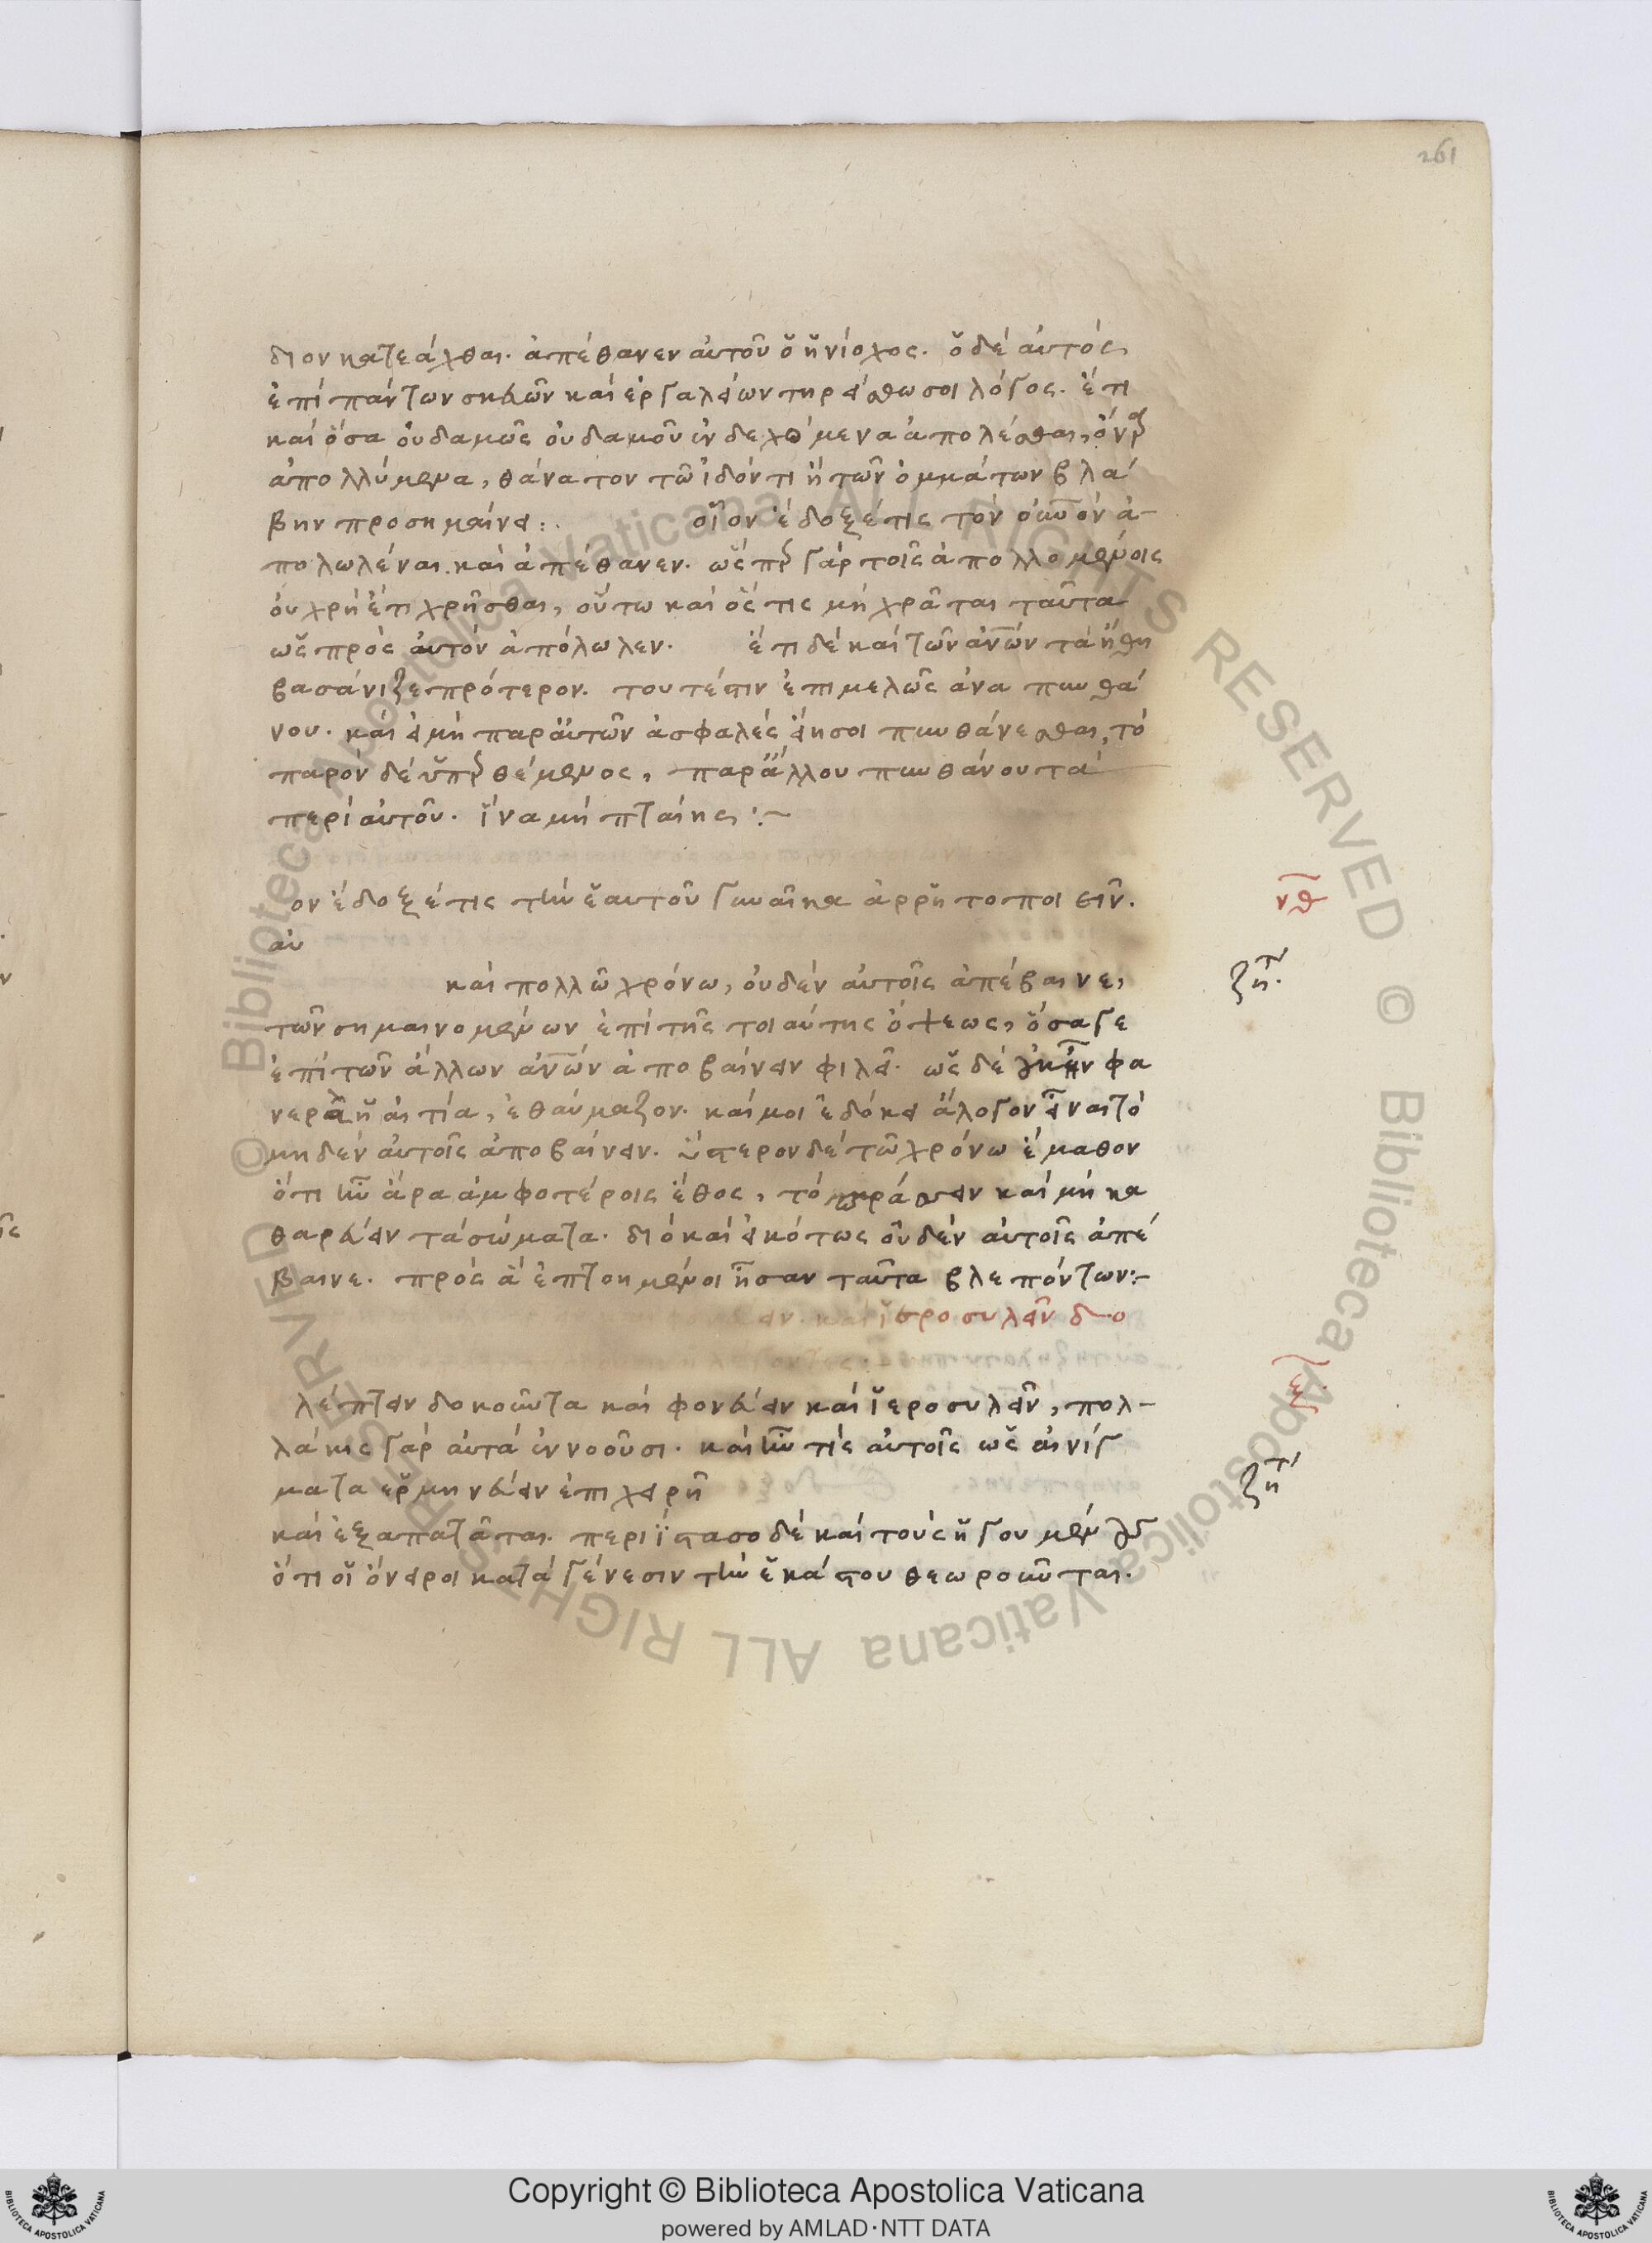 261
διον κατεάχθαι. ἀπέθανεν αὐτοῦ ὁ ἡνίοχος. ὁ δὲ αὐτὸς
ἐπὶ πάντων σκευῶν καὶ ἐργαλείων τηρείσθω σοι λόγος. ἔτι
καὶ ὅσα οὐδαμῶς οὐδαμοῦ ἐνδεχόμενα ἀπολέσθαι, ὄναρ
ἀπολλύμενα, θάνατον τῷ ἰδόντι ἢ τῶν ὀμμάτων βλά
βην προσημαίνει: οἷον ἔδοξέ τις τὸν οὐνὸν ἀ-
πολωλέναι. καὶ ἀπέθανεν. ὥσπερ γὰρ τοῖς ἀπολλομένοις
οὐ χρὴ ἔτι χρῆσθαι, οὕτω καὶ ὅστις μὴ χρᾶται ταῦτα
ὡς πρὸς αὐτὸν ἀπόλωλεν. ἔτι δὲ καὶ τῶν ἀνῶν τὰ ἤθη
βασάνιζε πρότερον. τουτέστιν ἐπιμελῶς ἀνα πυνθά
νου. καὶ εἰ μὴ παρ' αὐτῶν ἀσφαλὲς εἴη σοι πυνθάνεσθαι, τὸ
παρον δὲ ὑπερθέμενος, παρ' ἄλλου πυνθάνου τὰ
περὶ αὐτοῦ. ἵνα μὴ πταίης :~
ον ἔδοξέ τις τὴν ἑαυτοῦ γυναῖκα ἀρρητοποιεῖν.
αυ
καὶ πολλῷ χρόνῳ, οὐδὲν αὐτοῖς ἀπέβαινε,
τῶν σημαινομένων ἐπὶ τῆς τοιαύτης ὄψεως, ὅσα γε
ἐπὶ τῶν ἄλλων ἀνῶν ἀποβαίνειν φιλεῖ. ὡς δὲ οὐκ ἦν φα
νερὰ ἡ αἰτία, ἐθαύμαζον. καί μοι ἐδόκει ἄλογον εἶναι τὸ
μηδὲν αὐτοῖς ἀποβαίνειν. ὕστερον δὲ τῷ χρόνῳ ἔμαθον
ὅτι ἦν ἄρα ἀμφοτέροις ἔθος, τὸ πράσσειν καὶ μὴ κα
θαρεύειν τὰ σώματα. διὸ καὶ εἰκότως οὐδὲν αὐτοῖς ἀπέ
βαινε. πρὸς ἃ ἐπτοημένοι ἦσαν ταῦτα βλεπόντων:-
ειν. καὶ ἱεροσυλεῖν δο
λέπτειν δοκοῦντα καὶ φονεύειν καὶ ἱεροσυλεῖν, πολ-
λάκις γὰρ αὐτὰ ἐννοοῦσι. καὶ ἦν τις αὐτοῖς ὡς αἰνίγ
ματα ἑρμηνεύειν ἐπιχειρῇ
καὶ ἐξαπατᾶται. περιΐστασο δὲ καὶ τοὺς ἡγουμένους
ὅτι οἱ ὄνειροι κατὰ γένεσιν τὴν ἑκάστου θεωροῦνται.
νθ
ζητ
ξ
ζητ
Copyright © Biblioteca Apostolica Vaticana
powered by AMLAD·NTT DATA